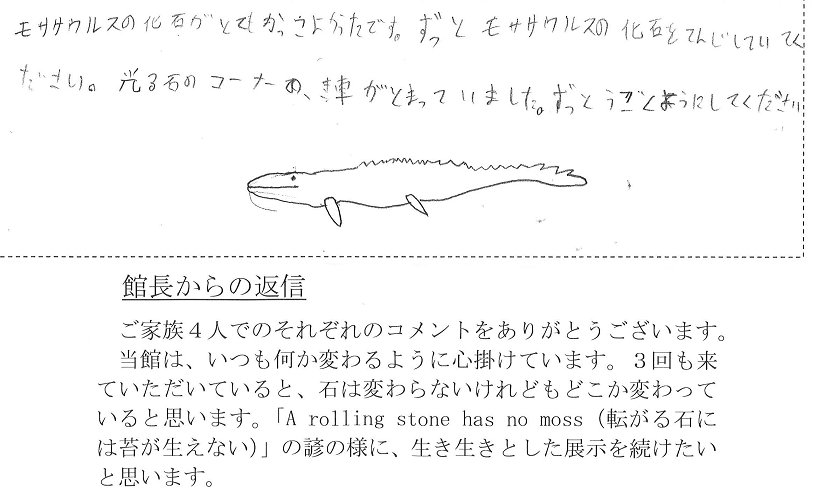 モササウルスの化石がとてもかっこよかったです。ずっとモササウルスの化石をてんじしていてく
ださい。光る石のコーナーの、き車がとまっていました。ずっとうごくようにしてください
館長からの返信
ご家族４人でのそれぞれのコメントをありがとうございます。
当館は、いつも何か変わるように心掛けています。３回も来
ていただいていると、石は変わらないけれどもどこか変わって
いると思います。「A rolling stone has no moss（転がる石に
は苔が生えない）」の諺の様に、生き生きとした展示を続けたい
と思います。